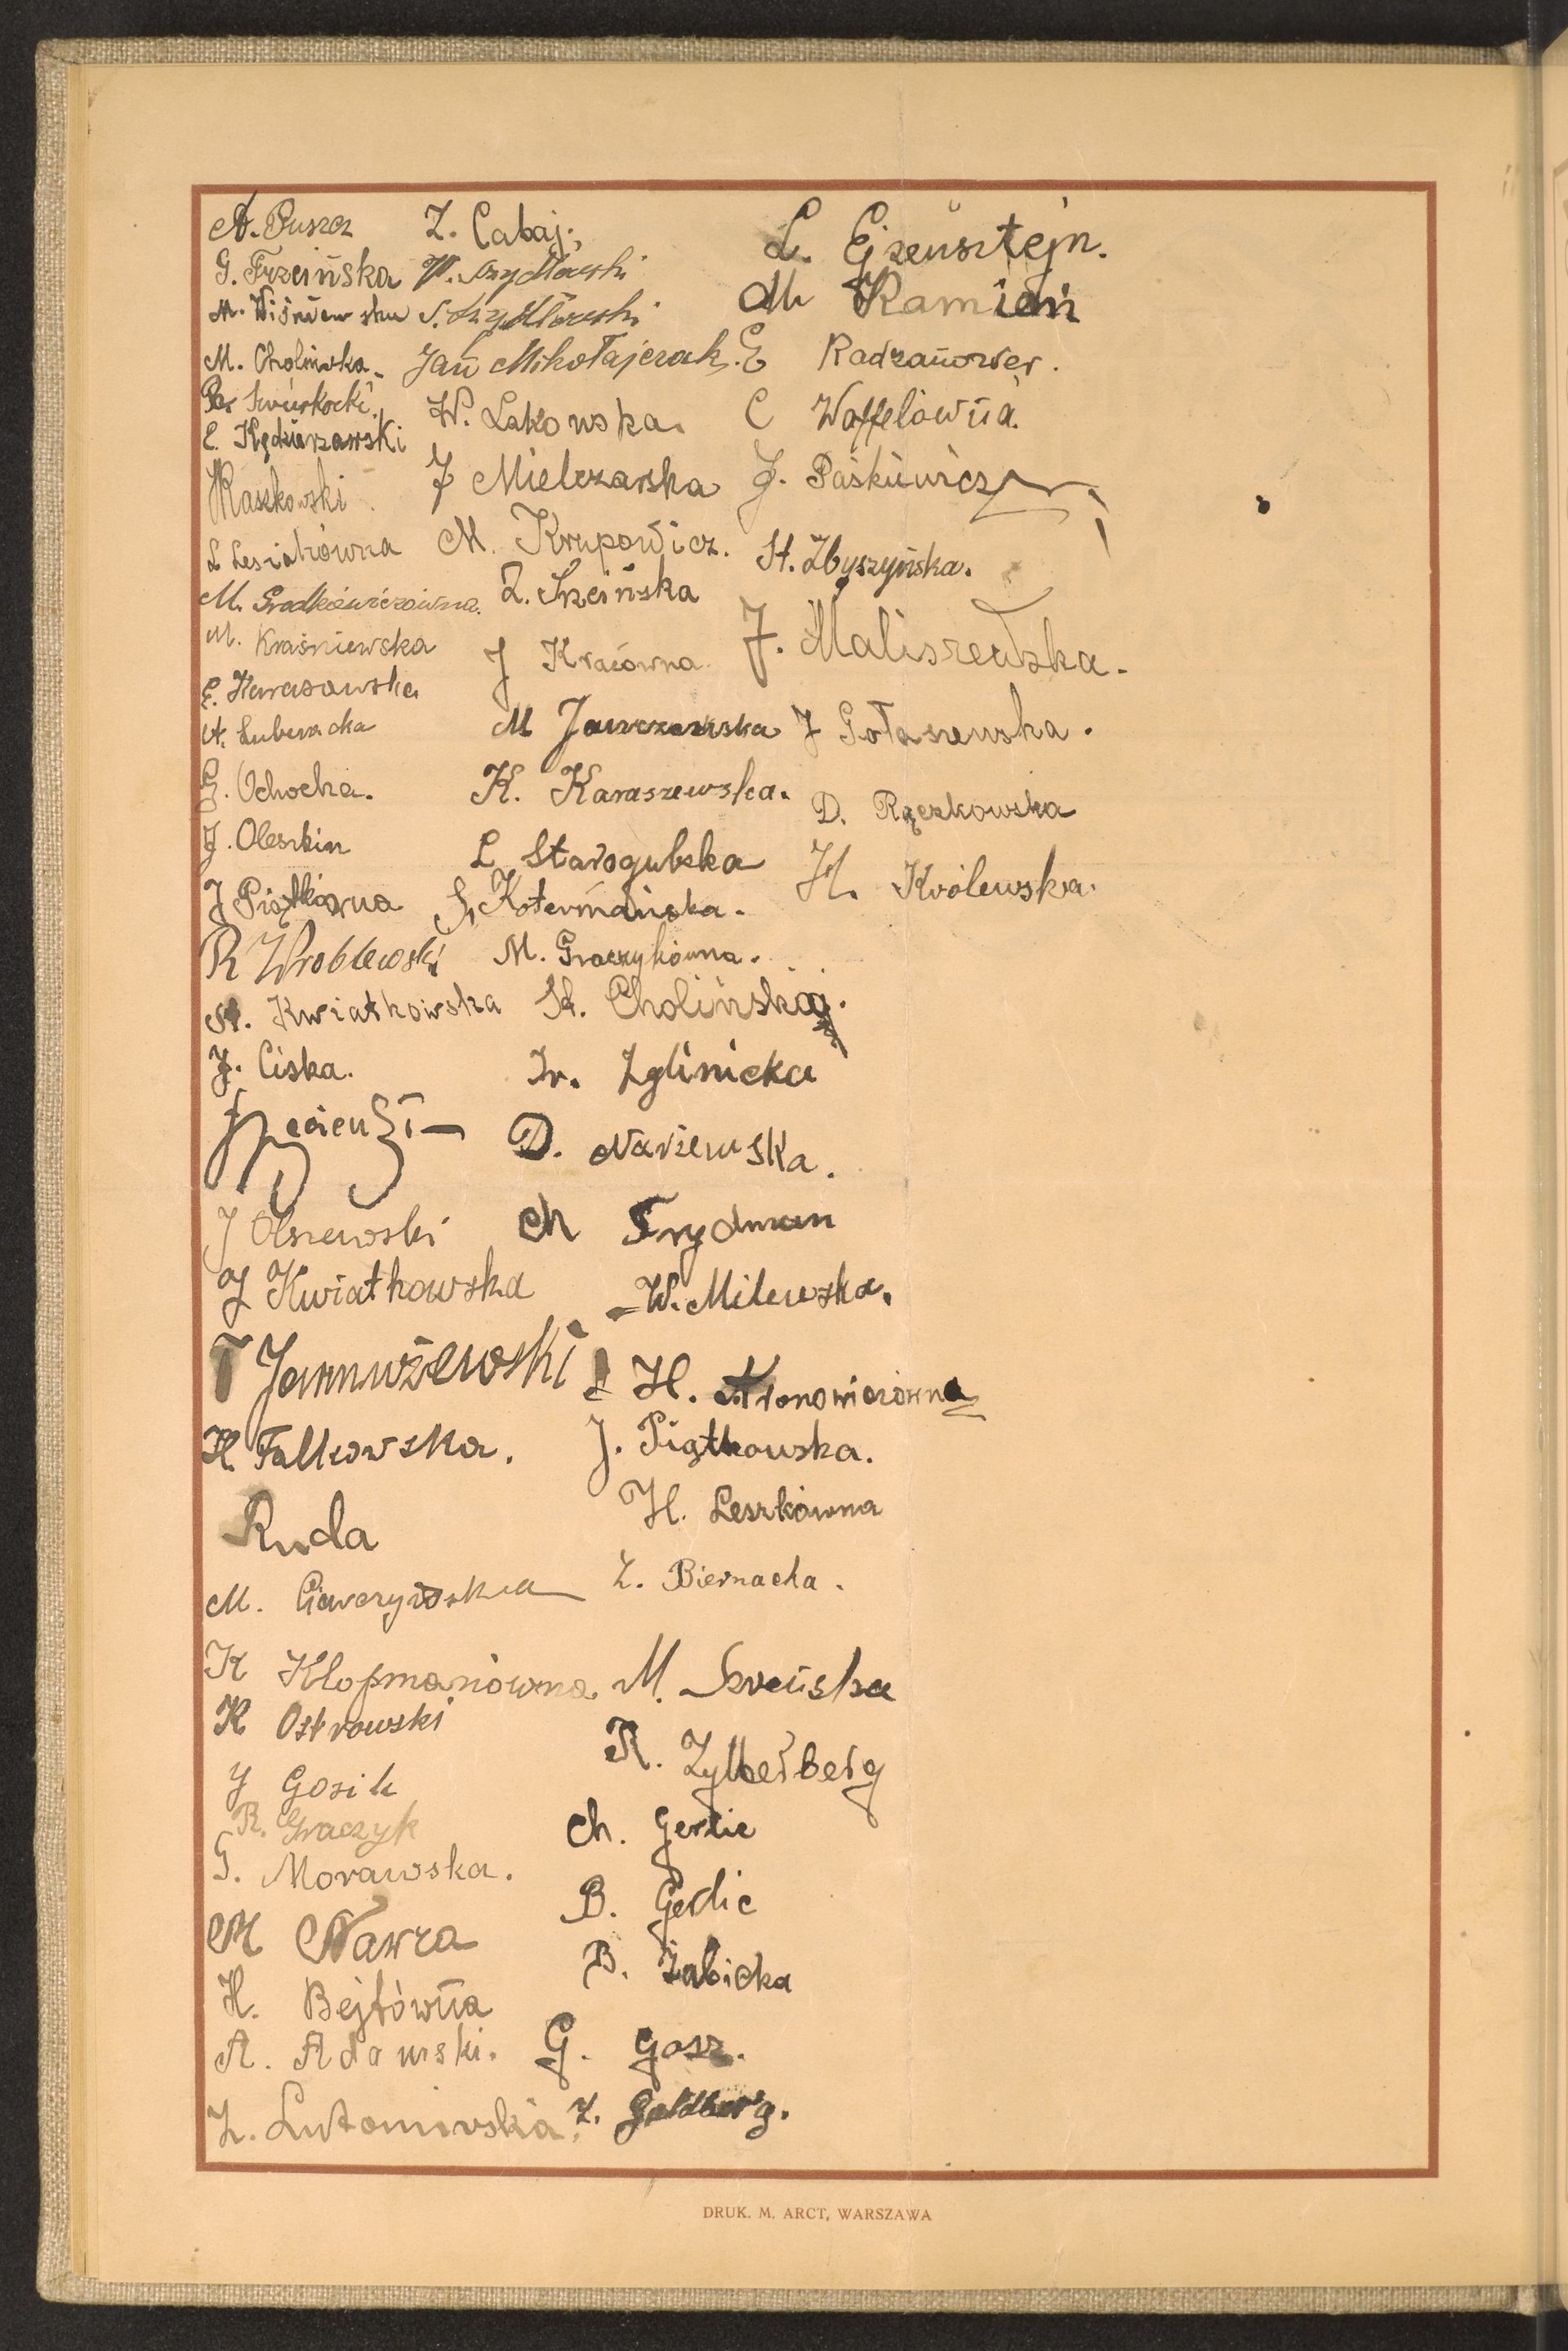 A. Puszcz
G. Trzcińska
M. Wiśniewska
M. Cholińska
E. Kędzierzawski
Kaszkowski
L Lesiakówna
M. Sradkiewiczówna.
M. Kraśniewska
E. Karasowska
A. Lubieracka
G. Ochocka.
J. Oleszkin
J Piątkówna
R Wroblewski
A. Kwiatkowska
J. Ciska.
J Olszewski
J Kwiatkowska
T Januszewski
H. Falkowska.
Ruda
M.
K Klopmanówna
K Ostrowski
J Gosik
R. Graczyk
G. Morawska.
M Nawra
H. Bejtówna
A. Adamski.
Z. Lutomirska.
Z. Cabaj.
W. Szydłowski
S. Szydłowski
Jan Mikołajczak.
W. Lakowska.
J Mielczarska
M. Krupowicz.
Z. Trzcińska
J Kracówna.
M Jaworzewska
K. Karaszewska.
L Starogubska
S. Kotermańska.
M. Graczykówna.
St. Cholińska.
Ir. Zglinicka
D. Narzewska.
Ch Frydman
W. Milewska.
H. Aronowiczówna
J. Piątkowska.
H. Leszkówna
Z. Biernacka.
M. Skreńska
R. Zylberberg
Ch. Gerlic
B. Gerlic
B. Żabicka
G. Gosz.
Z. Goldberg.
L. Ejzensztejn.
M Kamień
E Radzanower.
C Waffelówna.
J. Paśkiewicz
St. Zbyszyńska.
J. Maliszewska.
J Gołaszewska.
D. Rączkowska
H. Królewska.
DRUK. M. ARCT, WARSZAWA